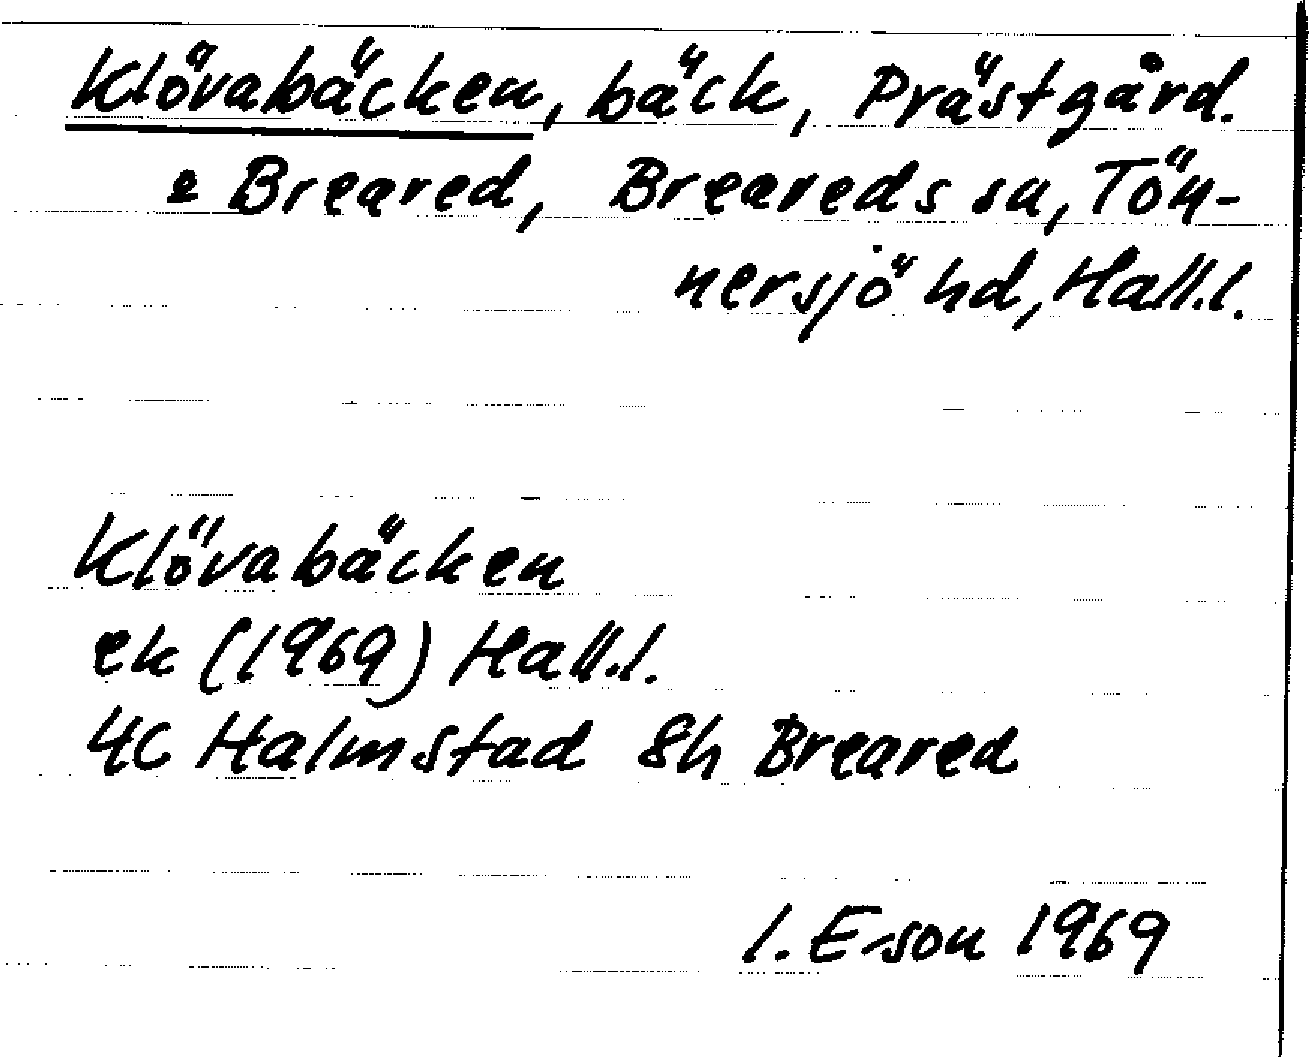 Klövabäcken, bäck, Prästgård.
e Breared, Breareds sn, Tön-
nersjö hd, Hall.l.
Klövabäcken
ek (1969) Hall.l.
4C Halmstad 8h Breared
I. E-son 1969